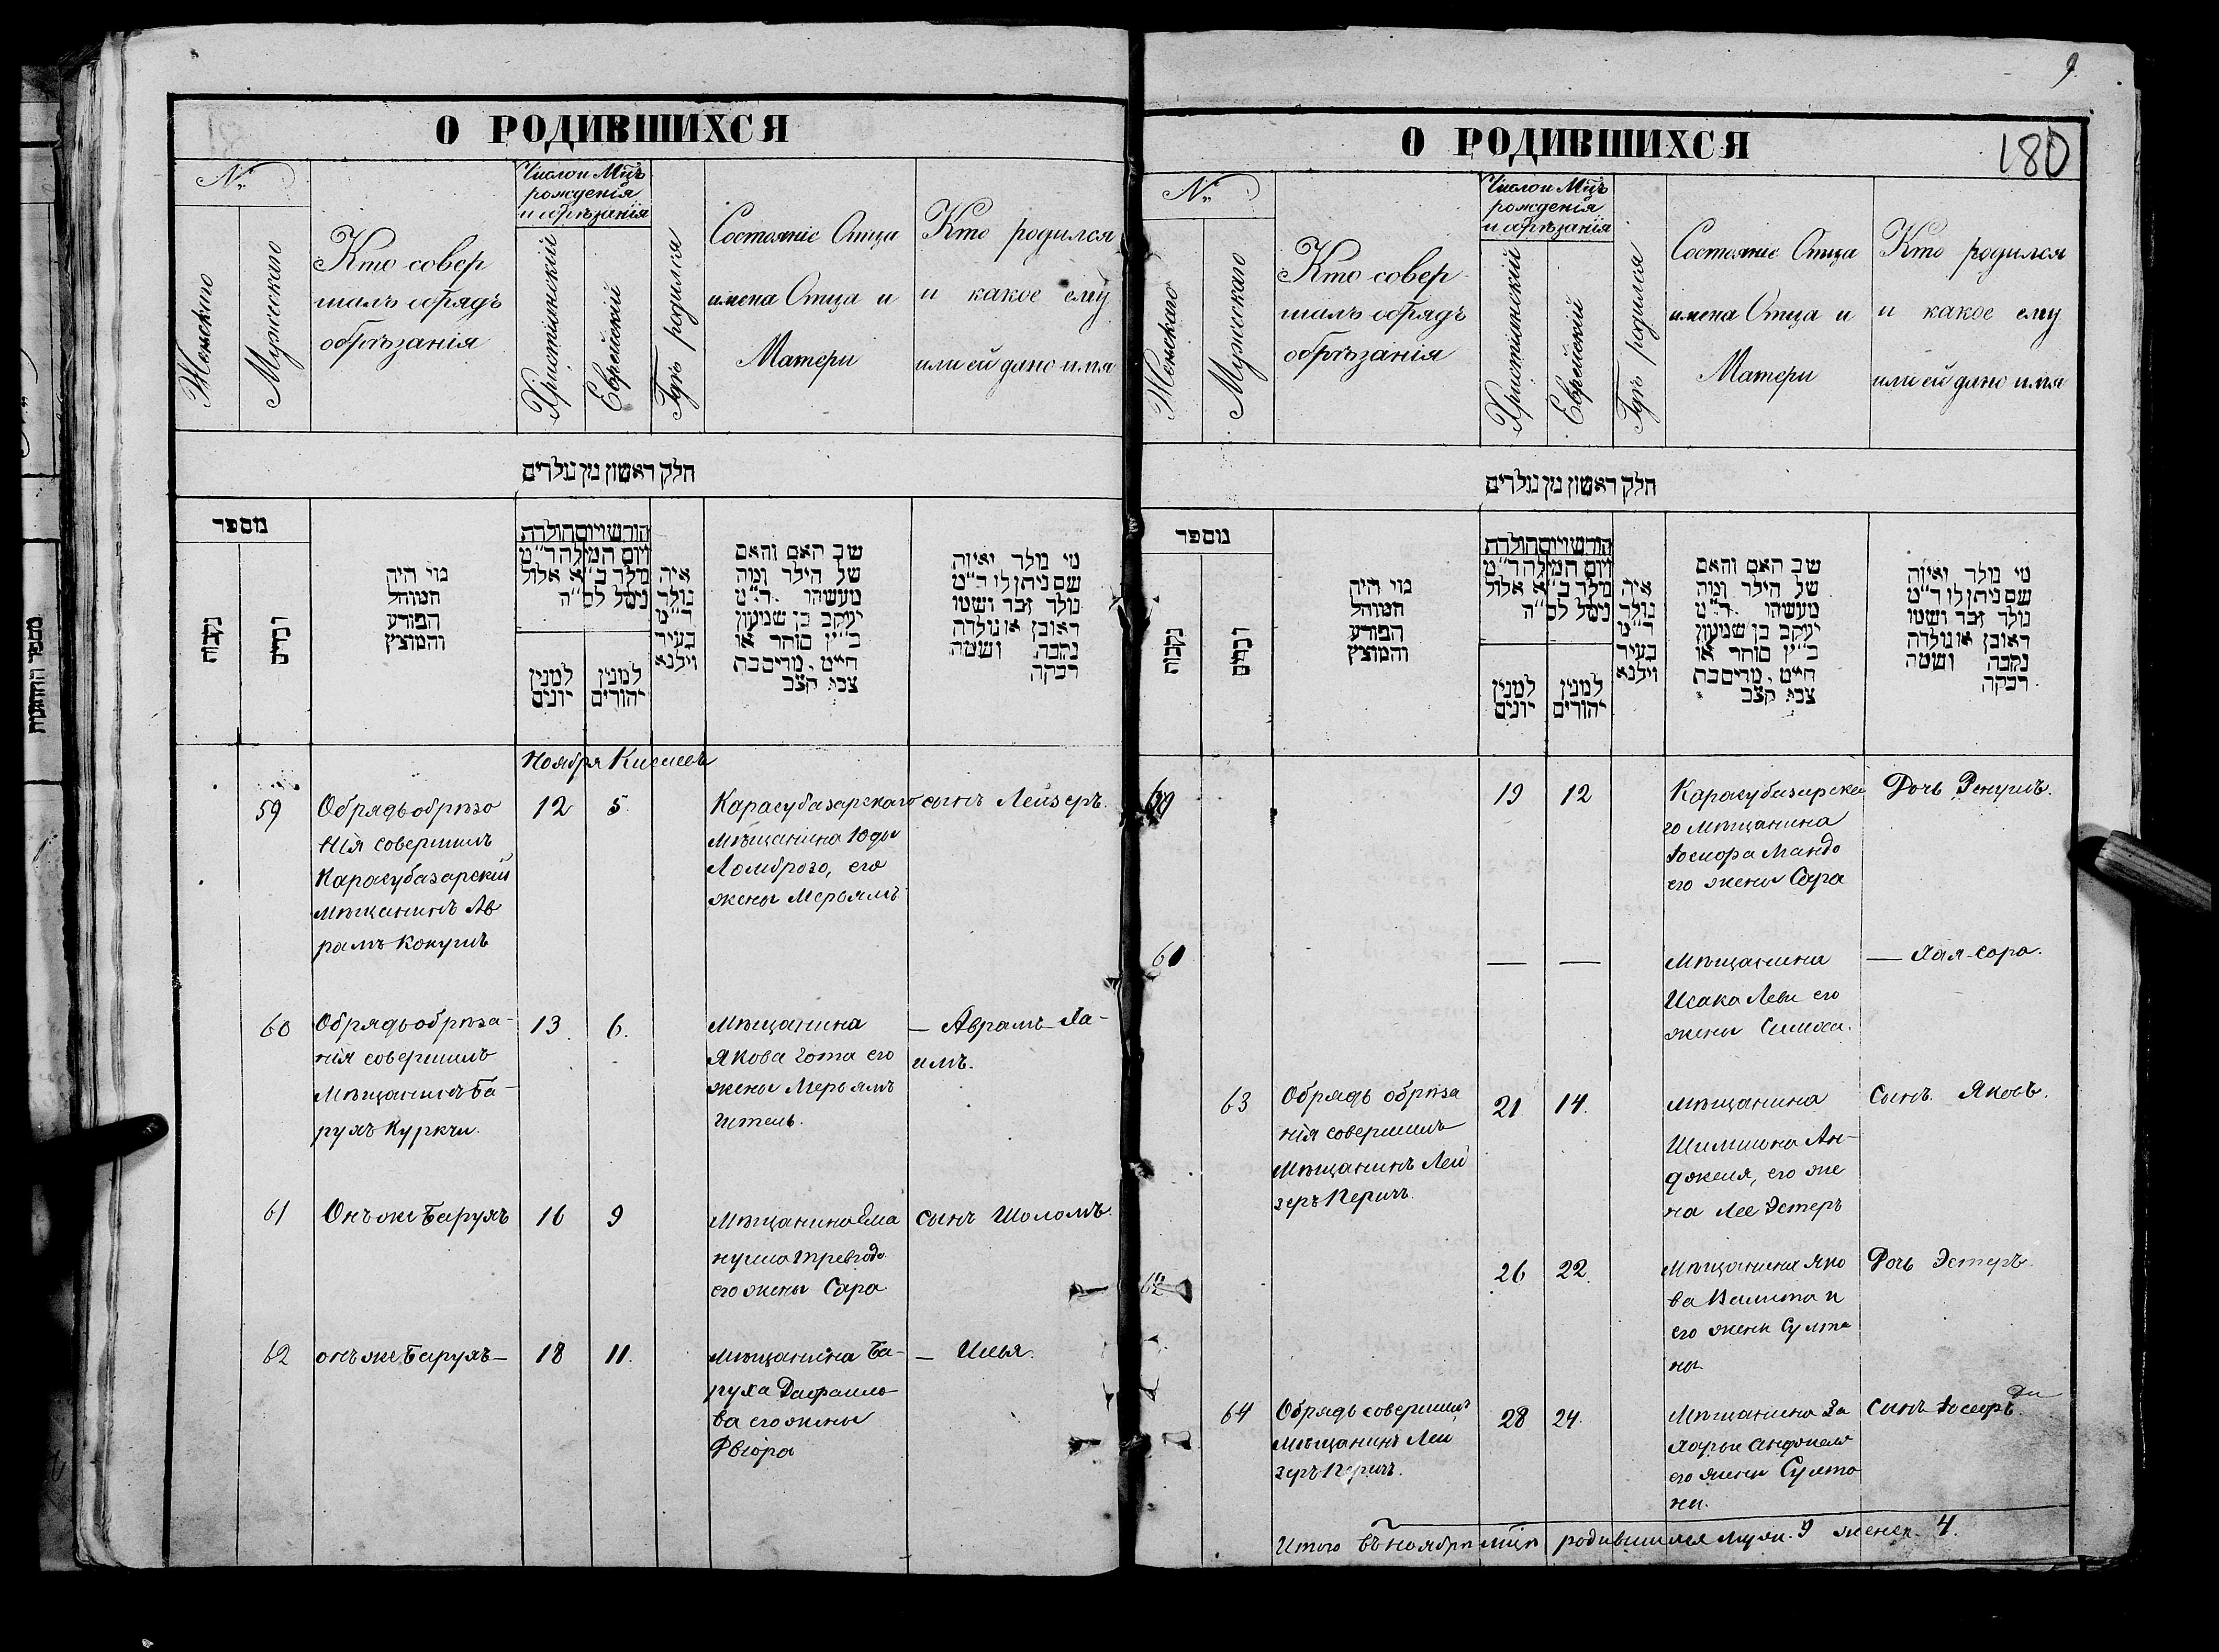 О РОДИВШИХСЯ
№
Женскаго
Мужескаго
Кто совер
шалъ обрядъ
обрѣзанія
Число и Мцъ
рожденія
и обрѣзанія
Христіанскій
Еврейскій
Гдѣ родился
Состояніе Отца
имена Отца и
Матери
Кто родился
и какое ему
или ей дано имя
חלק ראשון מן נולדים
מספר
נקבות
זכרים
מי היה
המוהל
הפורע
והמוצץ
חודש ויום הולדת
ויום המילה ד״מ
מלד כ״א אלול
נימל לס״ה
למנין
יונים
למנין
יהודים
איה
נולד
ד״מ
בעיר
וילנא
שב האם והאם
של הילד ומה
מעשהו ד״מ
יעקב בן שמעון
כ״ץ סוחר או
חייט. מרים בת
צבי קצב
מי נולד ואיזה
שם ניתן לו ד״מ
נולד זכר ושמו
ראובן או נולדה
נקבה ושמה
רבקה
Ноября Кислевъ
59
Обрядъ обрѣза
нія совершилъ
Карасубазарскій
мѣщанинъ Ав
рамъ Кокушъ
12
5
Карасубазарскаго
Мѣщанина Юды
Ломброзо, его
жены Мерьямъ
сынъ Лейзеръ.
60
Обрядъ обрѣза-
нія совершилъ
мѣщанинъ Ба-
рухъ Куркчи.
13
6.
Мѣщанина
Якова Гота его
жены Мерьямъ
Гитель.
— Аврамъ-Ха-
имъ.
61
Онъ же Барухъ
16
9
Мѣщанина Эма
нуила Тревгода
его жены Сара
сынъ Шоломъ.
62
онъ же Барухъ —
18
11.
мѣщанина Ба-
руха Рафаило-
ва его жены
Двіора
— Илья.
9
180
О РОДИВШИХСЯ
№
Женскаго
Мужескаго
Кто совер
шалъ обрядъ
обрѣзанія
Число и Мцъ
рожденія
и обрѣзанія
Христіанскій
Еврейскій
Гдѣ родился
Состояніе Отца
имена Отца и
Матери
Кто родился
и какое ему
или ей дано имя
חלק ראשון מן נולדים
מספר
נקבות
זכרים
מי היה
המוהל
הפורע
והמוצץ
חודש ויום הולדת
ויום המילה ד״מ
מלד כ״א אלול
נימל לס״ה
למנין
יונים
למנין
יהודים
איה
נולד
ד״מ
בעיר
וילנא
שב האם והאם
של הילד ומה
מעשהו ד״מ
יעקב בן שמעון
כ״ץ סוחר או
חייט. מרים בת
צבי קצב
מי נולד ואיזה
שם ניתן לו ד״מ
נולד זכר ושמו
ראובן או נולדה
נקבה ושמה
רבקה
19
12
Карасубазарска
го мѣщанина
Іосифа Мандо
его жены Сара
Дочь
61
— —
Мѣщанина
Исака Леви его
жены Симха.
— Хая-Сара.
63
Обрядъ обрѣза
нія совершилъ
мѣщанинъ Лей
зеръ Перичъ.
21
14.
мѣщанина
Шимшона Ан-
джеля, его же
на Лее Эстеръ
Сынъ Яковъ.
62
26
22.
мѣщанина Яко
ва
его жены Султа
ны.
Дочь Эстеръ.
64
Обрядъ совершилъ
мѣщанинъ Лей
зеръ Перичъ.
28
24.
Мѣщанина За
харьи Анджело
его жены Султа
ны.
Сынъ Іосифъ.
Итого въ ноябрѣ мцѣ родившихся муж. 9 женск. 4.